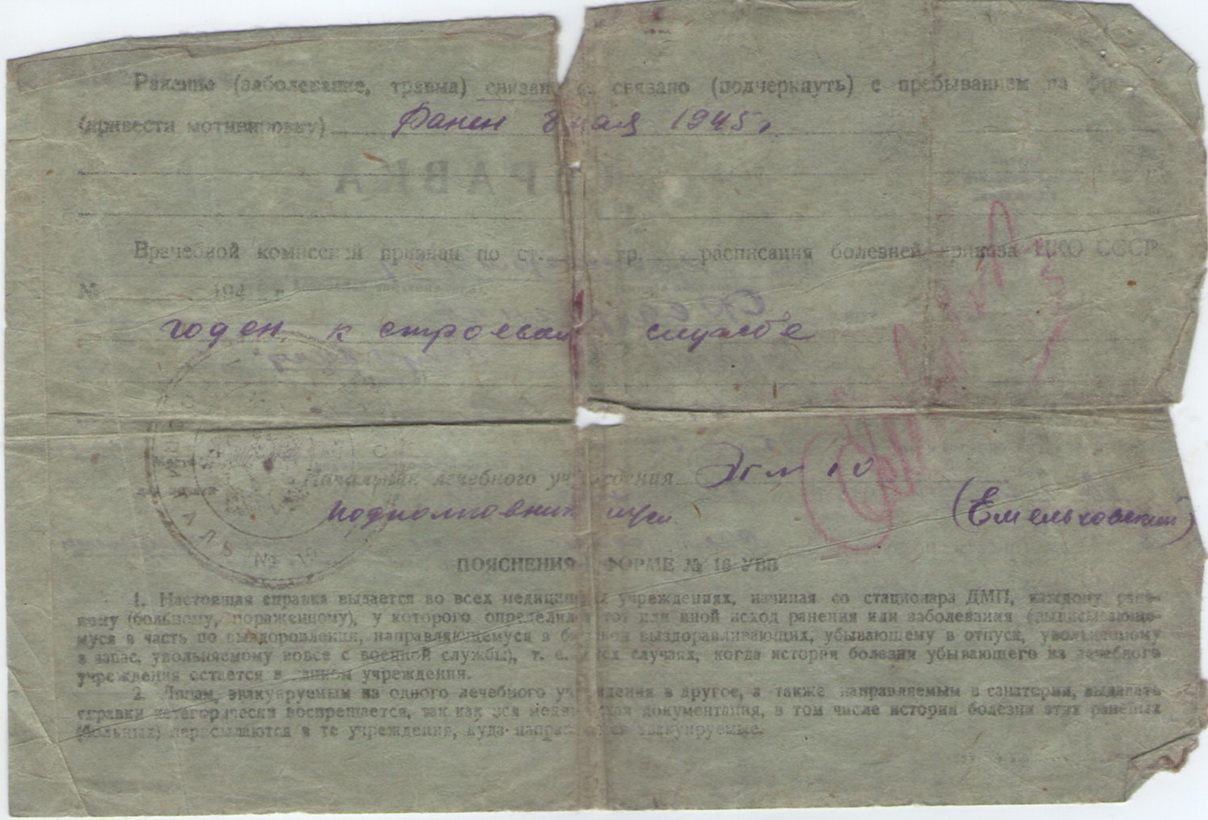 Ранение (заболевание, травма) связано, не связано (подчеркнуть) с пребыванием на
(привести мотивировку) Ранен 8 мая 1945 г
СПРАВКА
Врачебной комиссией признан по ст. гр. расписания болезней приказа НКО СССР
№ 194 г
годен к строевой службе
Начальник лечебного учреждения
Подполковник м/сл (Емельховский)
ПОЯСНЕНИЯ ФОРМЕ № 16 УВП
1. Настоящая справка выдается во всех медицинских учреждениях, начиная со стационара ДМП, каждому ране-
ному (больному, пораженному), у которого определился тот или иной исход ранения или заболевания (выписывающе-
муся в часть по выздоровлении, направляющемуся в б выздоравливающих, убывающему в отпуск, увольняемому
в запас, увольняемому вовсе с военной службы), т. е. всех случаях, когда история болезни убывающего из лечебного
учреждения остается в данном учреждении.
2. Лицам, эвакуируемым из одного лечебного учреждения в другое, а также направляемым в санатории, выдавать
справки категорически воспрещается, так как вся медицинская документация, в том числе истории болезни этих раненых
(больных) пересылаются в те учреждения, куда направляются эвакуируемые.